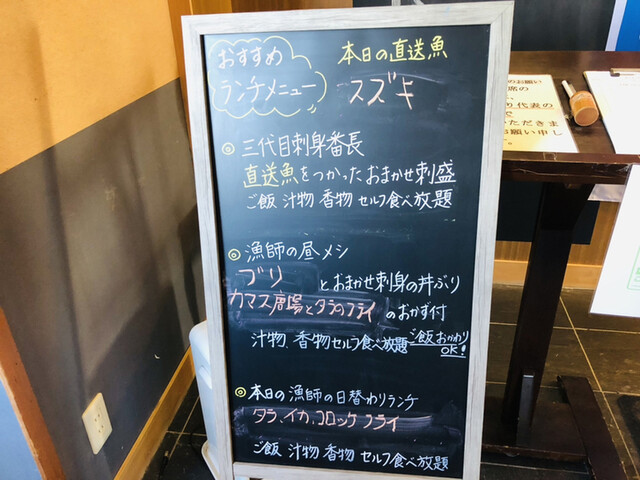 おすすめ
ランチメニュー
本日の直送魚
スズキ
◎三代目刺身番長
直送魚をつかったおまかせ刺盛
ご飯 汁物 香物 セルフ食べ放題
◎漁師の昼メシ
ブリ とおまかせ刺身の丼ぶり
カマス唐揚とタラのフライ のおかず付
汁物、香物セルフ食べ放題 ご飯おかわりOK!
◎本日の漁師の日替わりランチ
タラ、イカ、コロッケ フライ
ご飯 汁物 香物 セルフ食べ放題
のお願い
席の
り代表の
で
いただきま
お願い申し